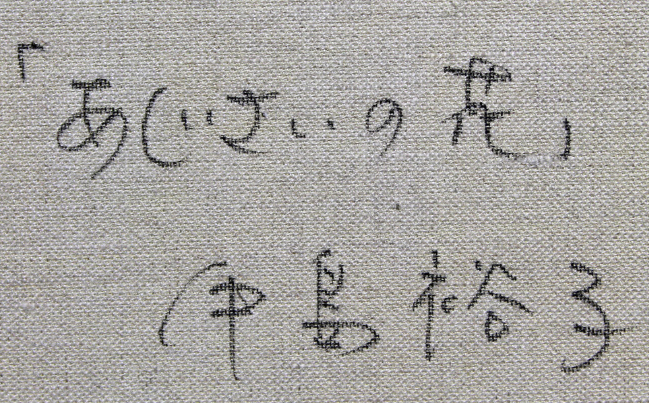 「あじさいの花」
伊島裕子